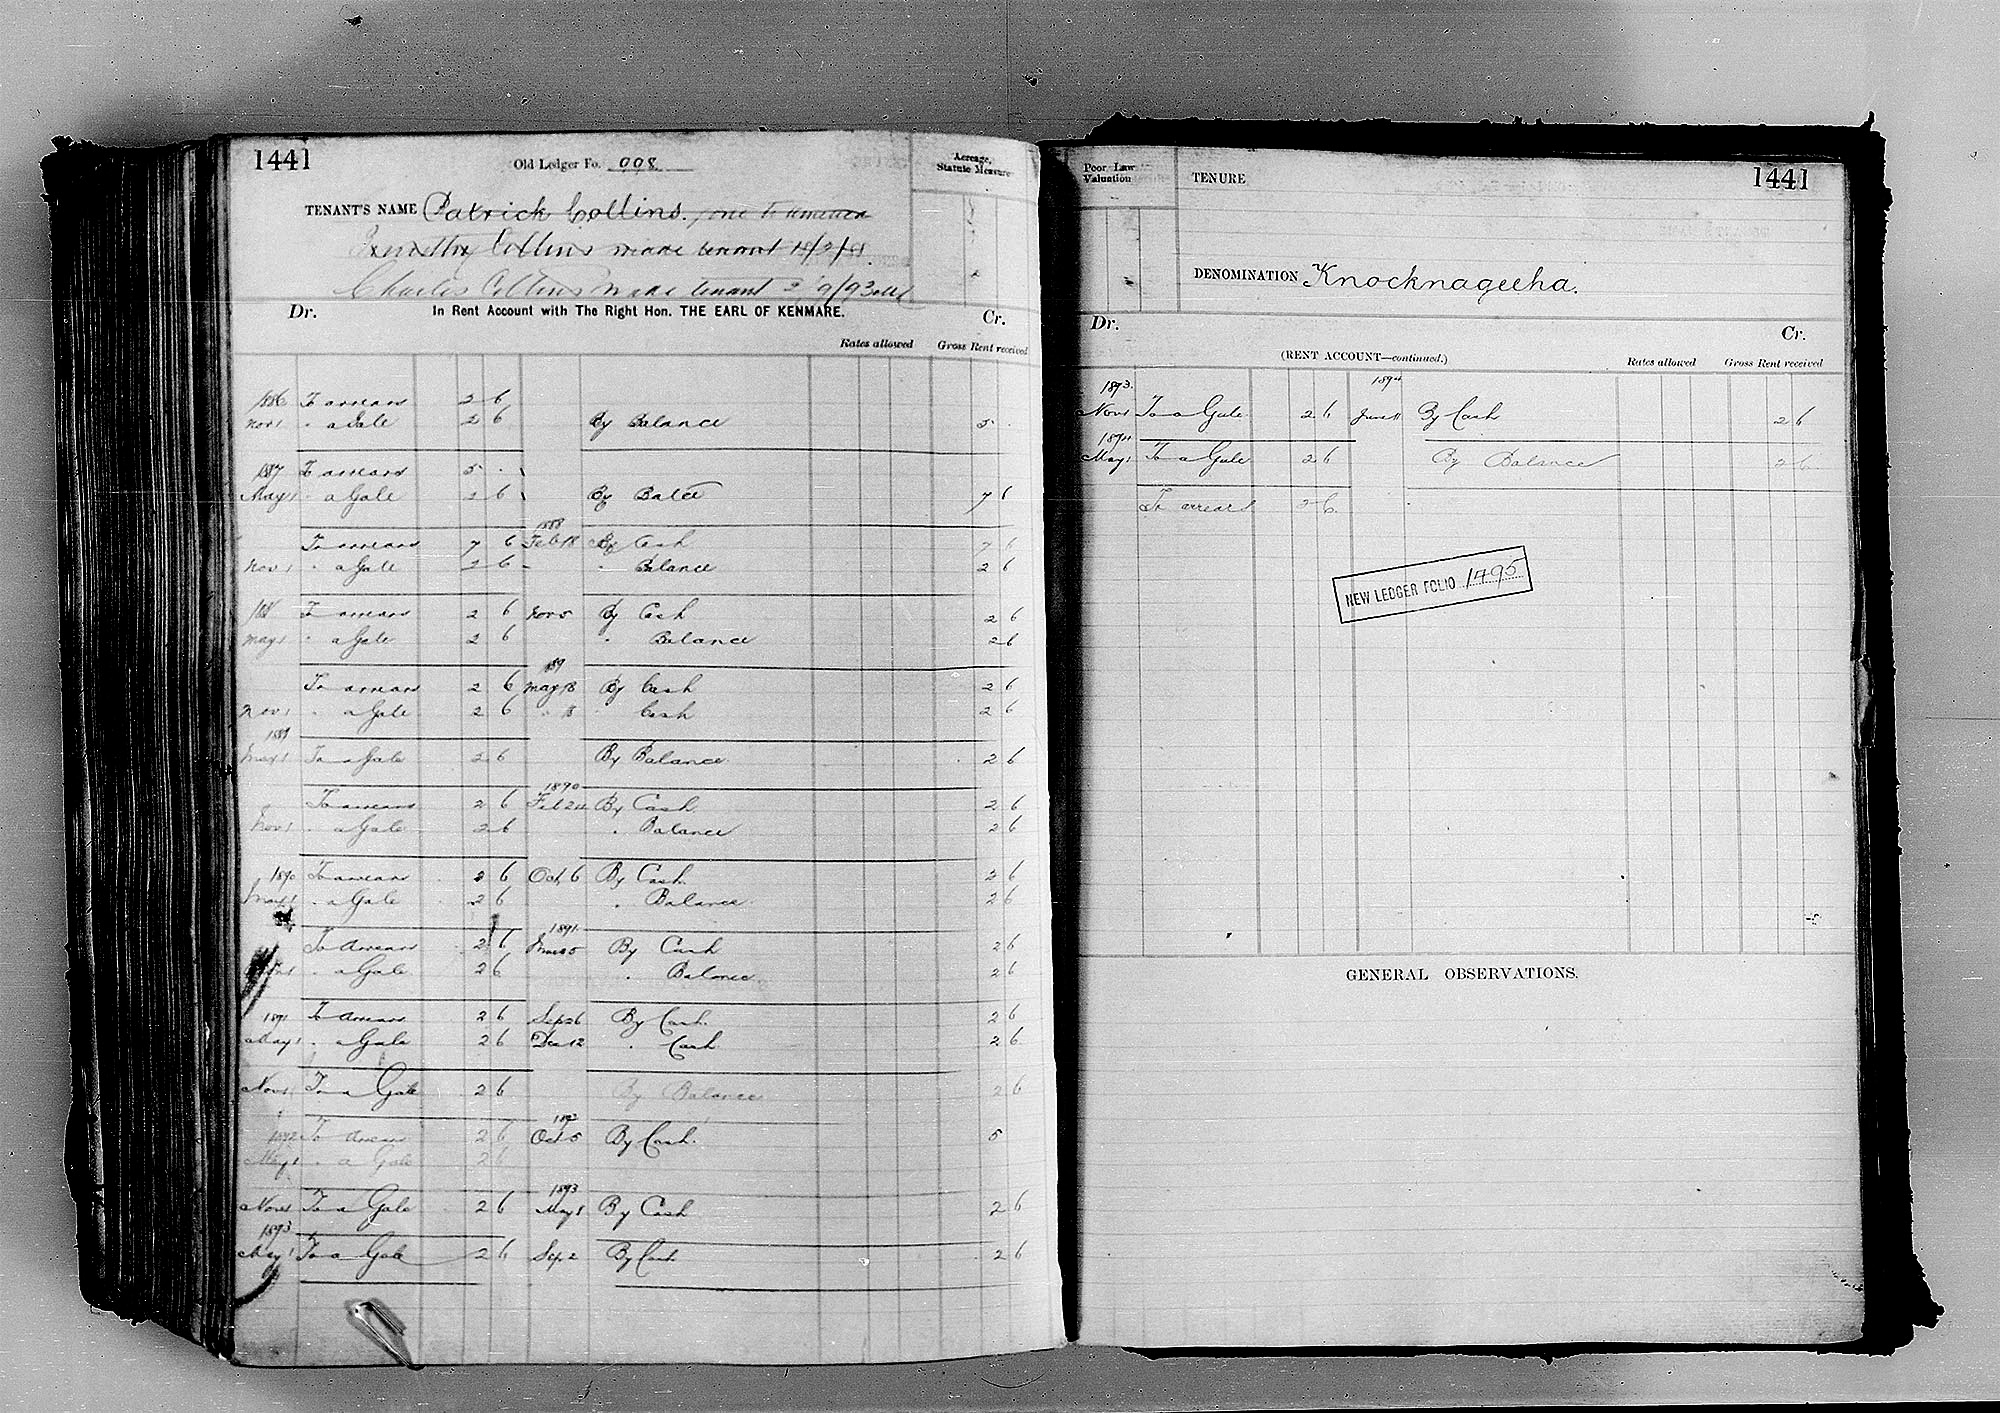 1441
Old Ledger Fo. 998
Acreage, Statute Measure
TENANT'S NAME Patrick Collins. gone to America
Timothy Collins made tenant 18/2/91
Charles Collins made tenant 2/9/93
Dr. In Rent Account with The Right Hon. THE EARL OF KENMARE. Cr.
Rates allowed Gross Rent received
1886 To arrears 2 6
Nov 1 " a Gale 2 6 By Balance 5 .
1887 To arrears 5 . .
May 1 " a Gale 2 6 By Balce 7 6
1888
To arrears 7 6 Feb 18 By Cash 7 6
Nov 1 " a Gale 2 6 " Balance 2 6
188 To arrears 2 6 Nov 5 By Cash 2 6
May 1 " a Gale 2 6 " Balance 2 6
189
To arrears 2 6 May 18 By Cash 2 6
Nov 1 " a Gale 2 6 " 18 " Cash 2 6
1889
May 1 To a Gale 2 6 By Balance 2 6
1890
To arrears 2 6 Feb 24 By Cash 2 6
Nov 1 " a Gale 2 6 " Balance 2 6
1890 To arrears 2 6 Oct 6 By Cash 2 6
May 1 " a Gale 2 6 " Balance 2 6
1891
To Arrears 2 6 Mar 5 By Cash 2 6
" a Gale 2 6 " Balance 2 6
1891 To Arrears 2 6 Sep 26 By Cash 2 6
May 1 " a Gale 2 6 Dec 12 " Cash 2 6
Nov 1 To a Gale 2 6 By Balance 2 6
1892
1892 To Arrears 2 6 Oct 5 By Cash 5
May 1 " a Gale 2 6
1893
Nov 1 To a Gale 2 6 May 1 By Cash 2 6
1893
May 1 To a Gale 2 6 Sep 2 By Cash 2 6
Poor Law Valuation
TENURE
1441
DENOMINATION Knocknageeha.
Dr. Cr.
(RENT ACCOUNT—continued.) Rates allowed Gross Rent received
1893. 1894
Nov 1 To a Gale 2 6 June 11 By Cash 2 6
1894
May 1 To a Gale 2 6 By Balance 2 6
To arrears 2 6
NEW LEDGER FOLIO 1495
GENERAL OBSERVATIONS.